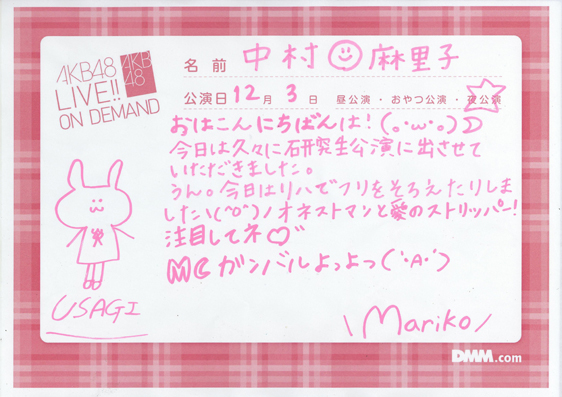 AKB48
LIVE!!
ON DEMAND
AKB
48
名前 中村麻里子
公演日 12月 3日 昼公演・おやつ公演・夜公演
おはこんにちばんは!(。・ω・。)
今日は久々に研究生公演に出させて
いただきました。
うん。今日はリハでフリをそろえたりしま
した\(^o^)ノオネストマンと愛のストリッパー!
注目してネ♡
MCガンバルよっよっ(`・A・´)
USAGI
\Mariko/
DMM.com